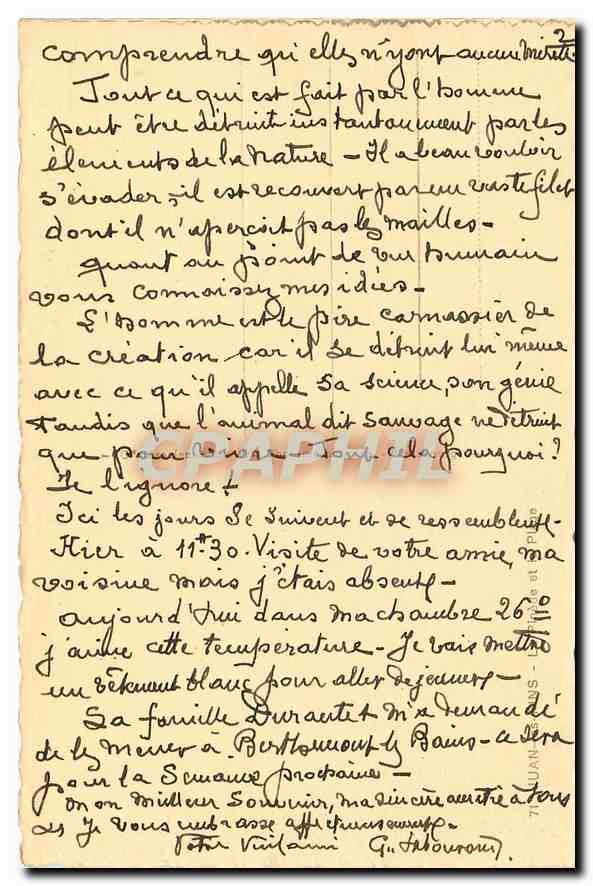 2
comprendre qu'elles n'y ont aucun
Tout ce qui est fait par l'homme
peut être détruit instantanément par les
éléments de la Nature — Il a beau vouloir
s'évader, il est recouvert par un vaste filet
dont il n'aperçoit pas les mailles —
Quant au point de vue humain
vous connaissez mes idées —
L'homme est le pire carnassier de
la création car il se détruit lui même
avec ce qu'il appelle sa science, son génie
tandis que l'animal dit sauvage ne détruit
que pour vivre — Tout cela pourquoi ?
Je l'ignore !
Ici les jours se suivent et se ressemblent —
Hier à 11h30. Visite de votre amie, ma
voisine mais j'étais absent —
aujourd'hui dans ma chambre 26°
j'aime cette température — Je vais mettre
un vêtement blanc pour aller dejeuner —
La famille m'a demandé
de les mener à Berthemont les Bains — ce sera
pour la Semaine prochaine —
Mon meilleur Souvenir, ma sincère amitié à tous
et Je vous embrasse affectueusement —
Votre Vieil ami G.
CPAPHIL
JUAN-les-PINS - La Pinède et la Plage